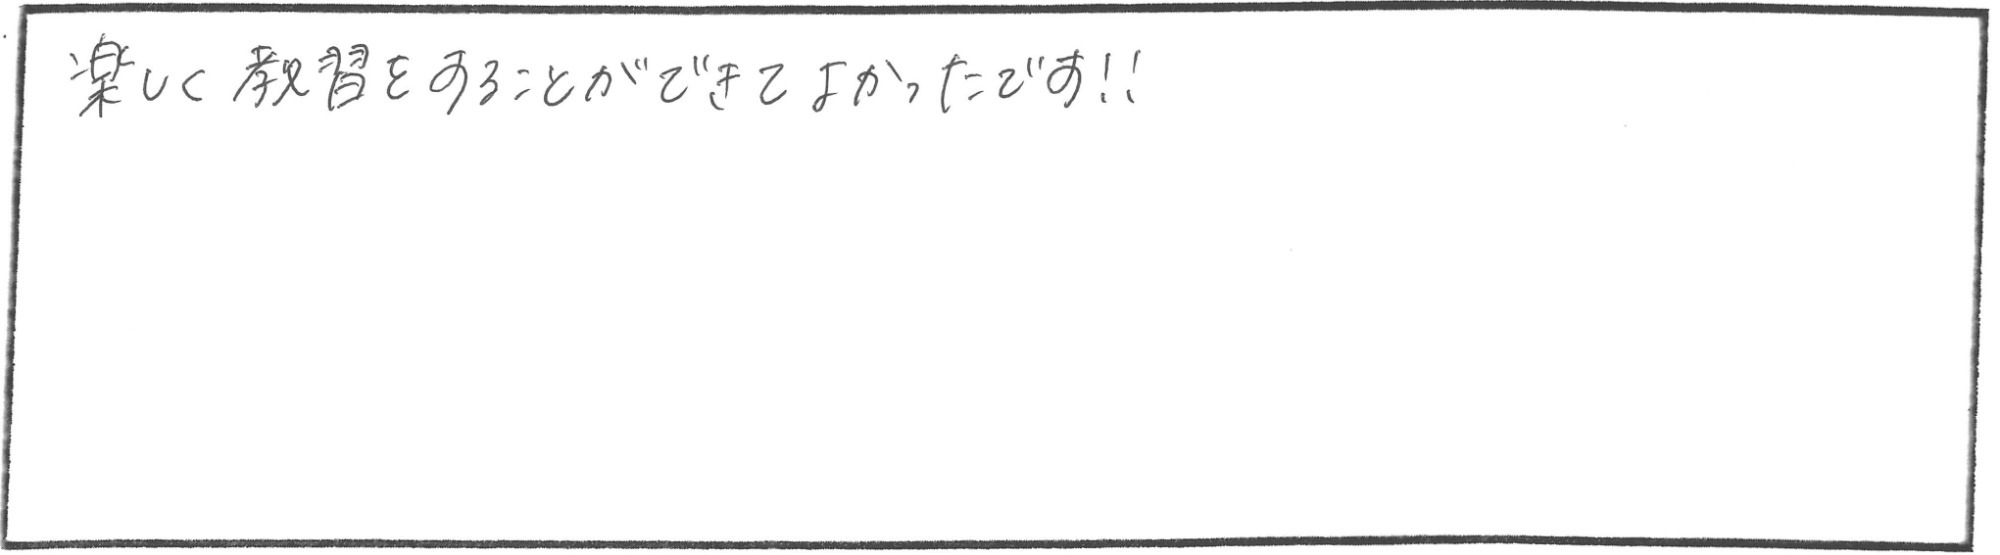 楽しく教習をすることができてよかったです!!